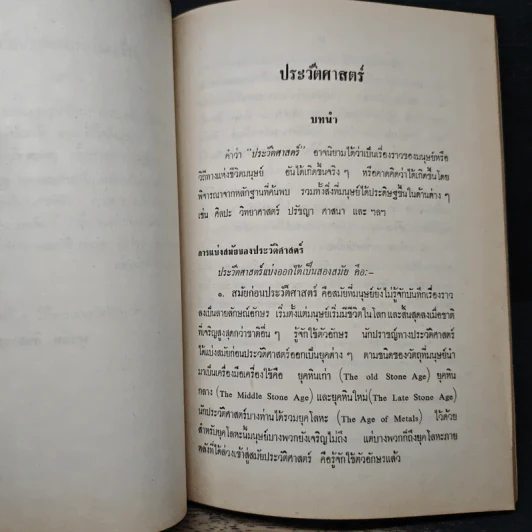 ประวัติศาสตร์
บทนำ
คำว่า "ประวัติศาสตร์" อาจนิยามได้ว่าเป็นเรื่องราวของมนุษย์หรือ
วิถีทางแห่งชีวิตมนุษย์ อันได้เกิดขึ้นจริง ๆ หรือคาดคิดว่าได้เกิดขึ้นโดย
พิจารณาจากหลักฐานที่ค้นพบ รวมทั้งสิ่งที่มนุษย์ได้ประดิษฐขึ้นในด้านต่าง ๆ
เช่น ศิลปะ วิทยาศาสตร์ ปรัชญา ศาสนา และ ฯลฯ
การแบ่งสมัยของประวัติศาสตร์
ประวัติศาสตร์แบ่งออกได้เป็นสองสมัย คือ:-
๑. สมัยก่อนประวัติศาสตร์ คือสมัยที่มนุษย์ยังไม่รู้จักบันทึกเรื่องราว
ลงเป็นลายลักษณ์อักษร เริ่มตั้งแต่มนุษย์เริ่มมีชีวิตในโลก และสิ้นสุดลงเมื่อชาติ
ที่เจริญสูงสุดกว่าชาติอื่น ๆ รู้จักใช้ตัวอักษร นักปราชญ์ทางประวัติศาสตร์
ได้แบ่งสมัยก่อนประวัติศาสตร์ออกเป็นยุคต่าง ๆ ตามชนิดของวัตถุที่มนุษย์นำ
มาเป็นเครื่องมือเครื่องใช้คือ ยุคหินเก่า (The old Stone Age) ยุคหิน
กลาง (The Middle Stone Age) และยุคหินใหม่ (The Late Stone Age)
นักประวัติศาสตร์บางท่านได้รวมยุคโลหะ (The Age of Metals) ไว้ด้วย
สำหรับยุคโลหะนั้นมนุษย์บางพวกยังเจริญไม่ถึง แต่บางพวกก็ถึงยุคโลหะภาย
หลังที่ได้ล่วงเข้าสู่สมัยประวัติศาสตร์ คือรู้จักใช้ตัวอักษรแล้ว